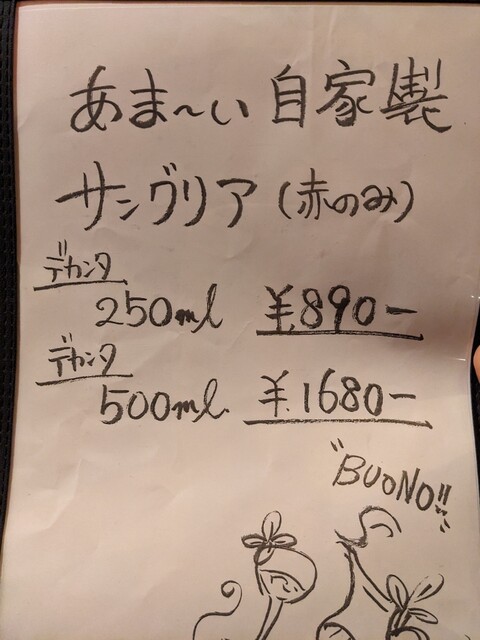 あま〜い 自家製
サングリア (赤のみ)
デカンタ
250ml ¥.890−
デカンタ
500ml. ¥.1680−
"BUONO!!"